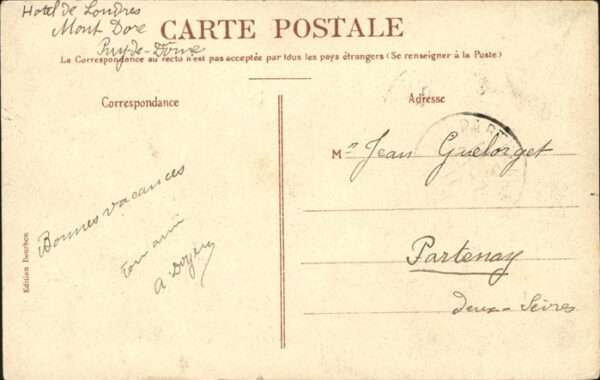 Hotel de Londres
Mont Dore
Puy-de-Dôme
CARTE POSTALE
La Correspondance au recto n'est pas acceptée par tous les pays étrangers (Se renseigner à la Poste)
Correspondance
Adresse
Bonnes vacances
Ton ami
Edition Bourbon
M r Jean Guelorget
Partenay
Deux-Sèvres